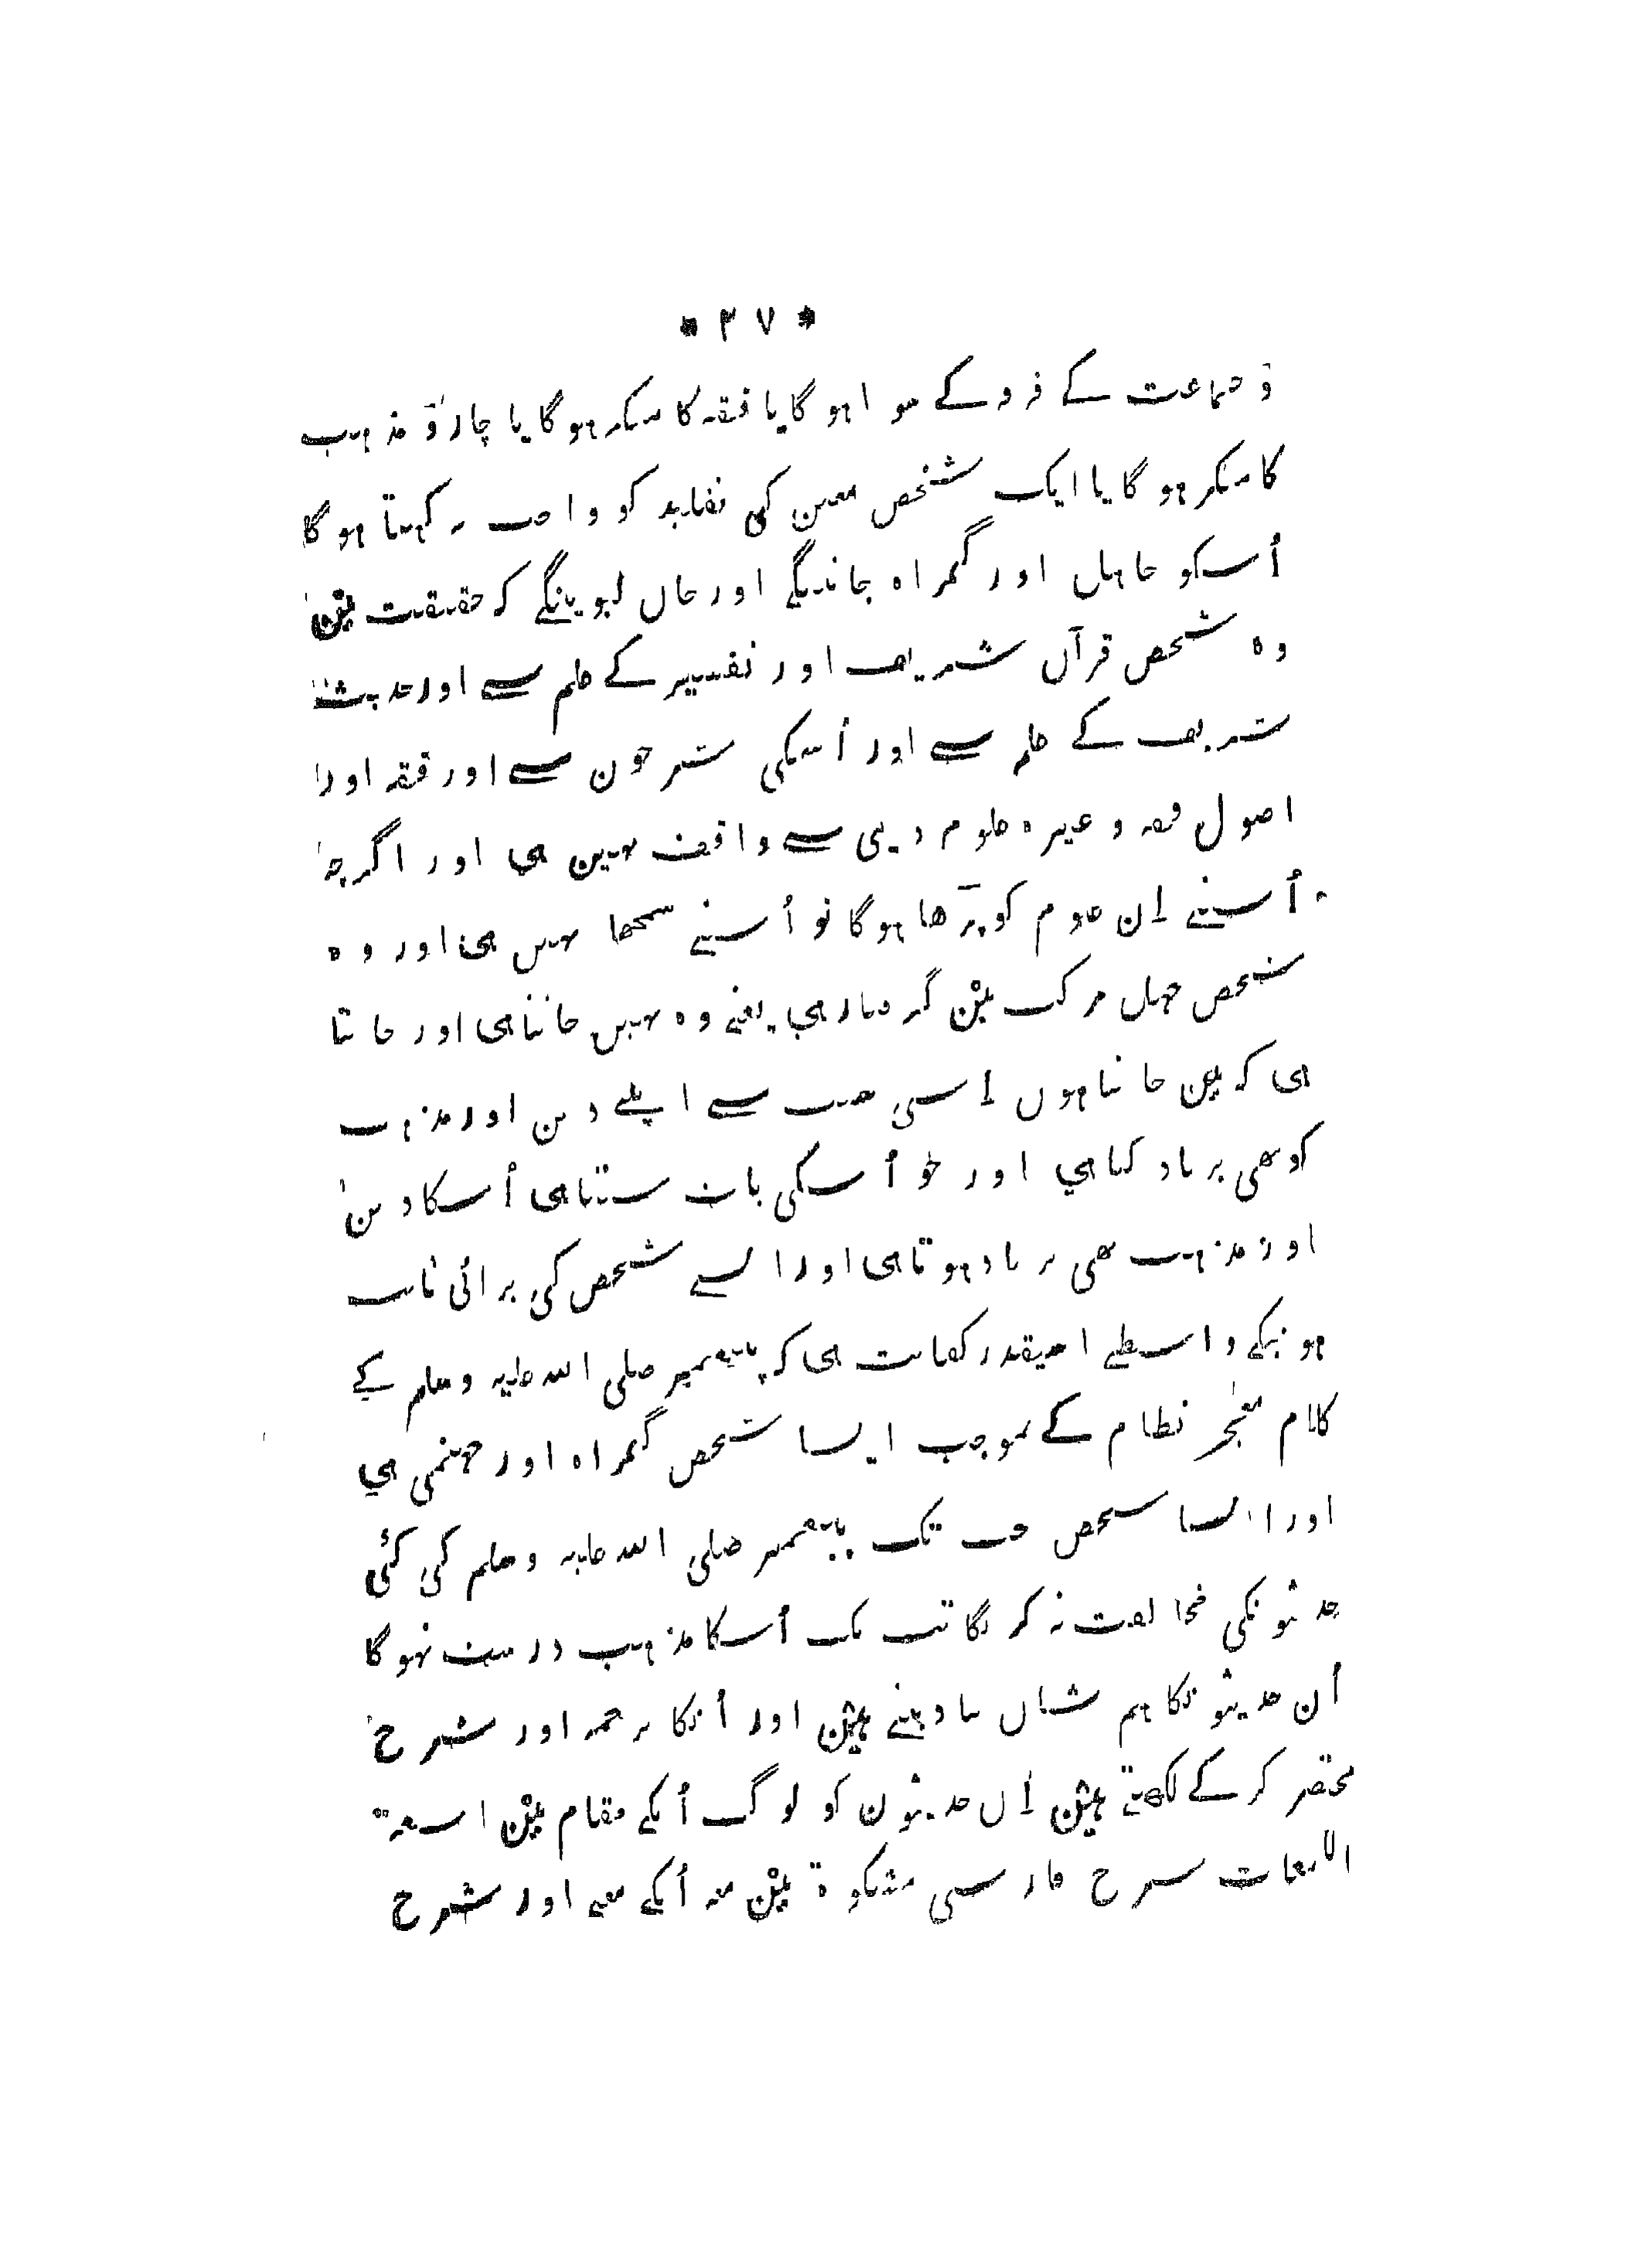 * ۲۷ *
و جماعت کے فرقے کے سوا ہوگا یا فقہ کا منکر ہوگا یا چارو مذہب
کا منکر ہوگا یا ایک شخص معین کی تقلید کو واجب نہ کہتا ہوگا
اُسکو جاہل اور گمراہ جانینگے اور جان لیوینگے کہ حقیقت مین
وہ شخص قرآن شریف اور تفسیر کے علم سے اور حدیث
شریف کے علم سے اور اُسکی شرحون سے اور فقہ اور
اصول فقہ وغیرہ علوم دینی سے واقف نہین ہی اور اگرچہ
اُسنے اِن علوم کو پڑھا ہوگا تو اُسنے سمجھا نہین ہی اور وہ
شخص جہل مرکب مین گرفتار ہی یعنے وہ نہین جانتاہی اور جانتا
ہی کہ مین جانتا ہون اِسی سبب سے اپنے دین اور مذہب
کو بھی برباد کیا ہی اور جو اُسکی بات سنتاہی اُسکا دین
اور مذہب بھی برباد ہوتاہی اور ایسے شخص کی برائی ثابت
ہونیکے واسطے اسیقدر کفایت ہی کہ پیغمبر صلی اللہ علیہ وسلم کے
کلام معجز نظام کے بموجب ایسا شخص گمراہ اور جہنمی ہی
اور ایسا شخص جب تک پیغمبر صلی اللہ علیہ وسلم کی کئی
حدیثونکی مخالفت نہ کریگا تب تک اُسکا مذہب درست نہوگا
اُن حدیثونکا ہم نشان بتا دیتے ہین اور اُنکا ترجمہ اور شرح
مختصر کرکے لکھتے ہین اِن حدیثون کو لوگ اُنکے مقام مین اشعۃ
اللمعات شرح فارسی مشکوۃ مین مع اُنکے معنے اور شرح